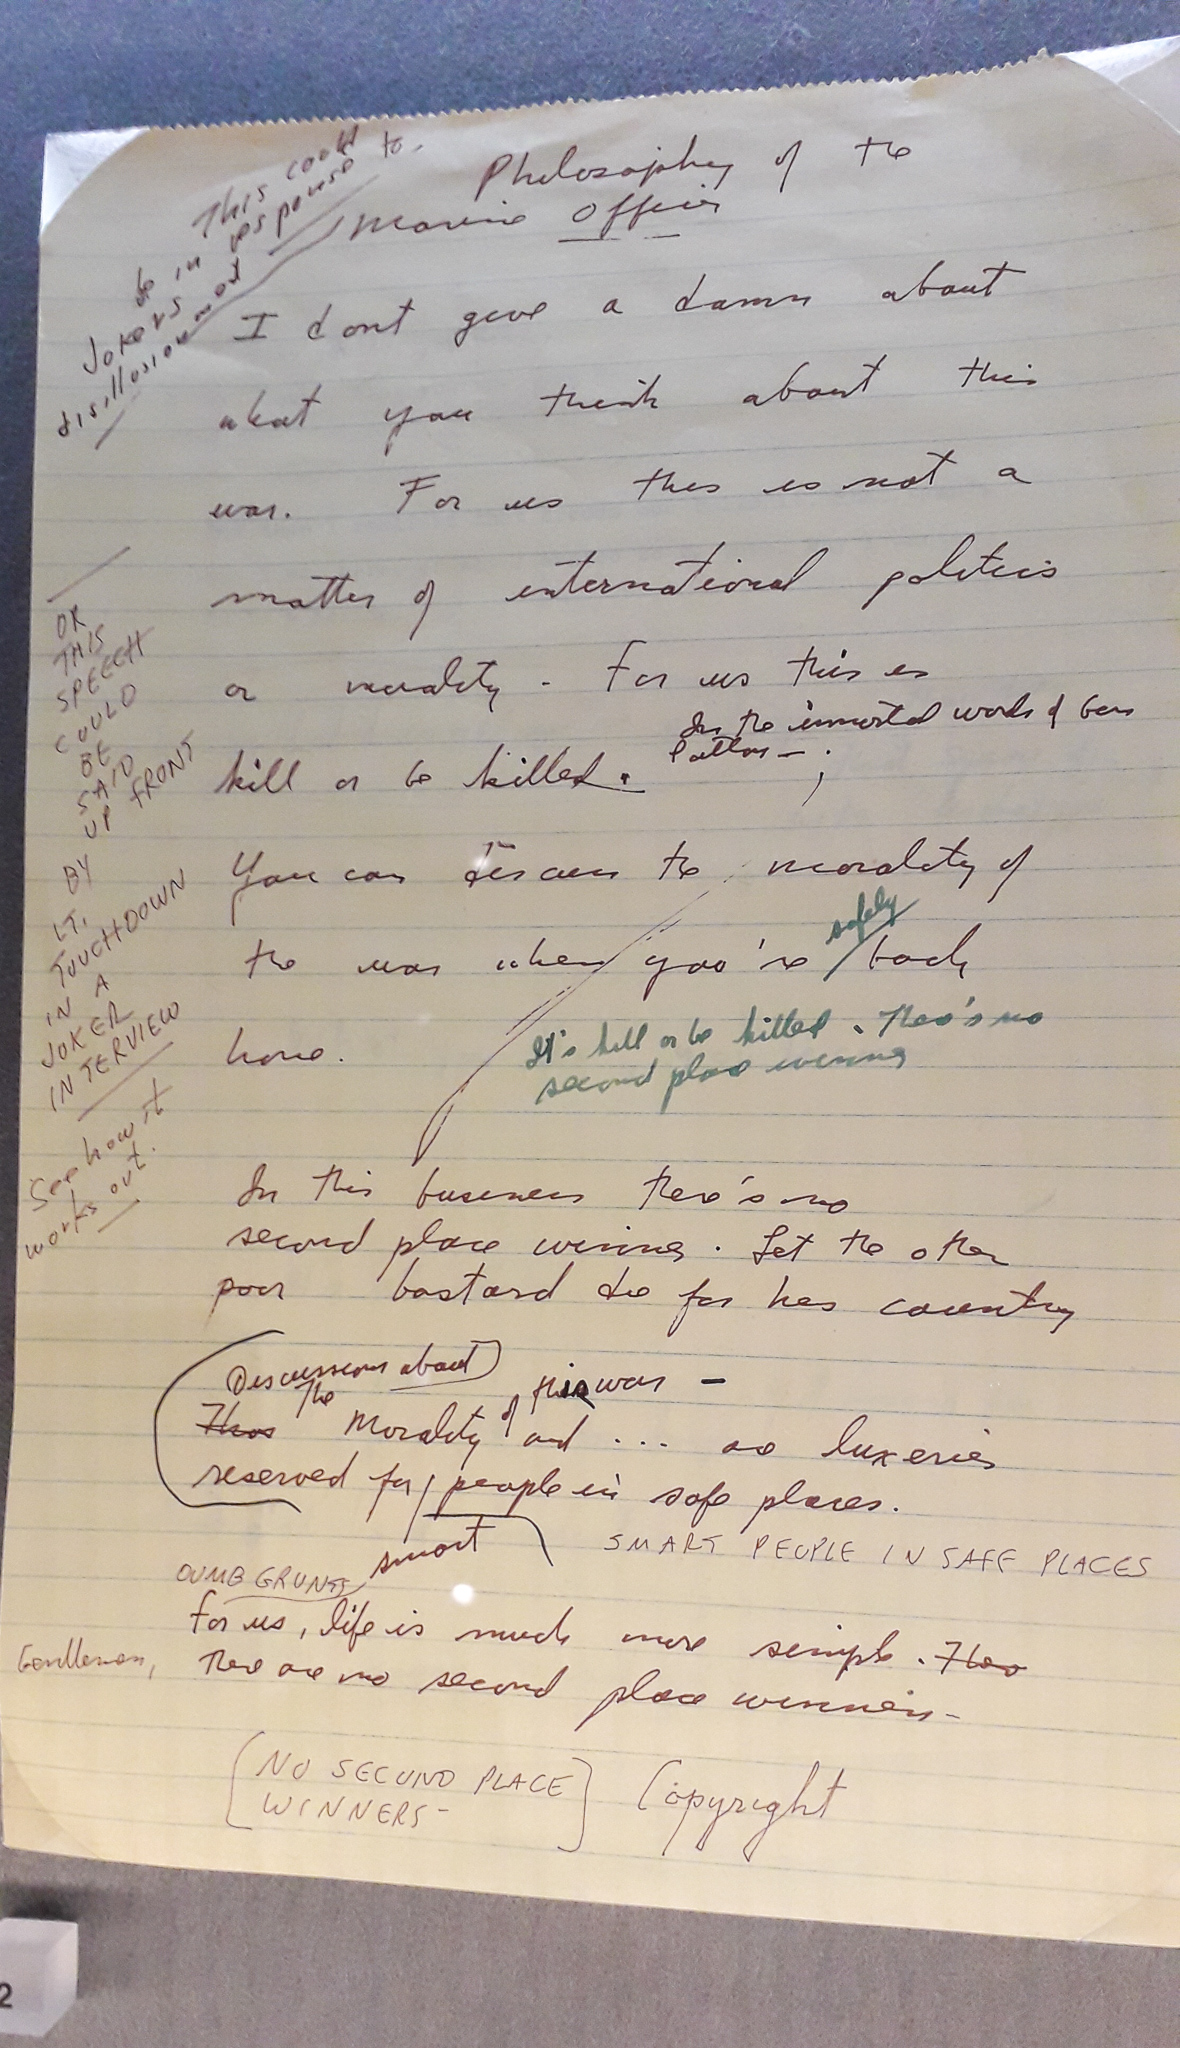 This could
be in response to
Jokers
disillusionment
Philosophy of the
Marine Officer
I dont give a damn about
what you think about this
war. For us this is not a
matter of international politics
or morality - For us this is
kill or be killed.
In the immortal words of Gen
Patton - ;
You can discuss the morality of
the war when you're safely back
home.
It's kill or be killed. There's no
second place winner
In this business there's no
second place winner. Let the other
poor bastard die for his country
Discussions about
This The Morality of this war -
and ... are luxeries
reserved for people in safe places.
smart
SMART PEOPLE IN SAFE PLACES
DUMB GRUNTS
For us, life is much more simple. Ther
Gentlemen, There are no second place winners-
[NO SECOND PLACE
WINNERS-]
Copyright
OR
THIS
SPEECH
COULD
BE
SAID
UP FRONT
BY
LT.
TOUCHDOWN
IN A
JOKER
INTERVIEW
See how it
works out.
2